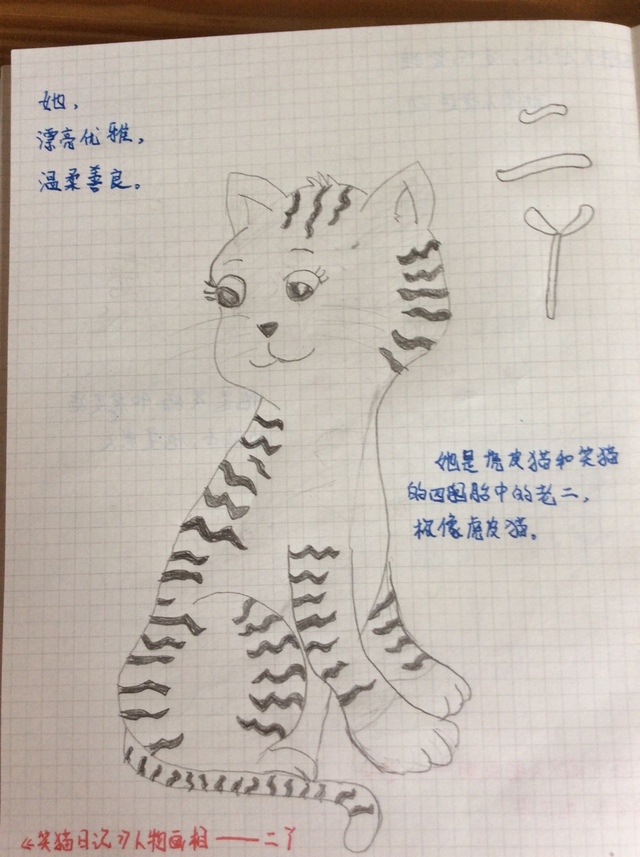 她，
漂亮优雅，
温柔善良。
二丫
她是虎皮猫和笑猫
的四胞胎中的老二，
极像虎皮猫。
《笑猫日记》人物画相——二丫